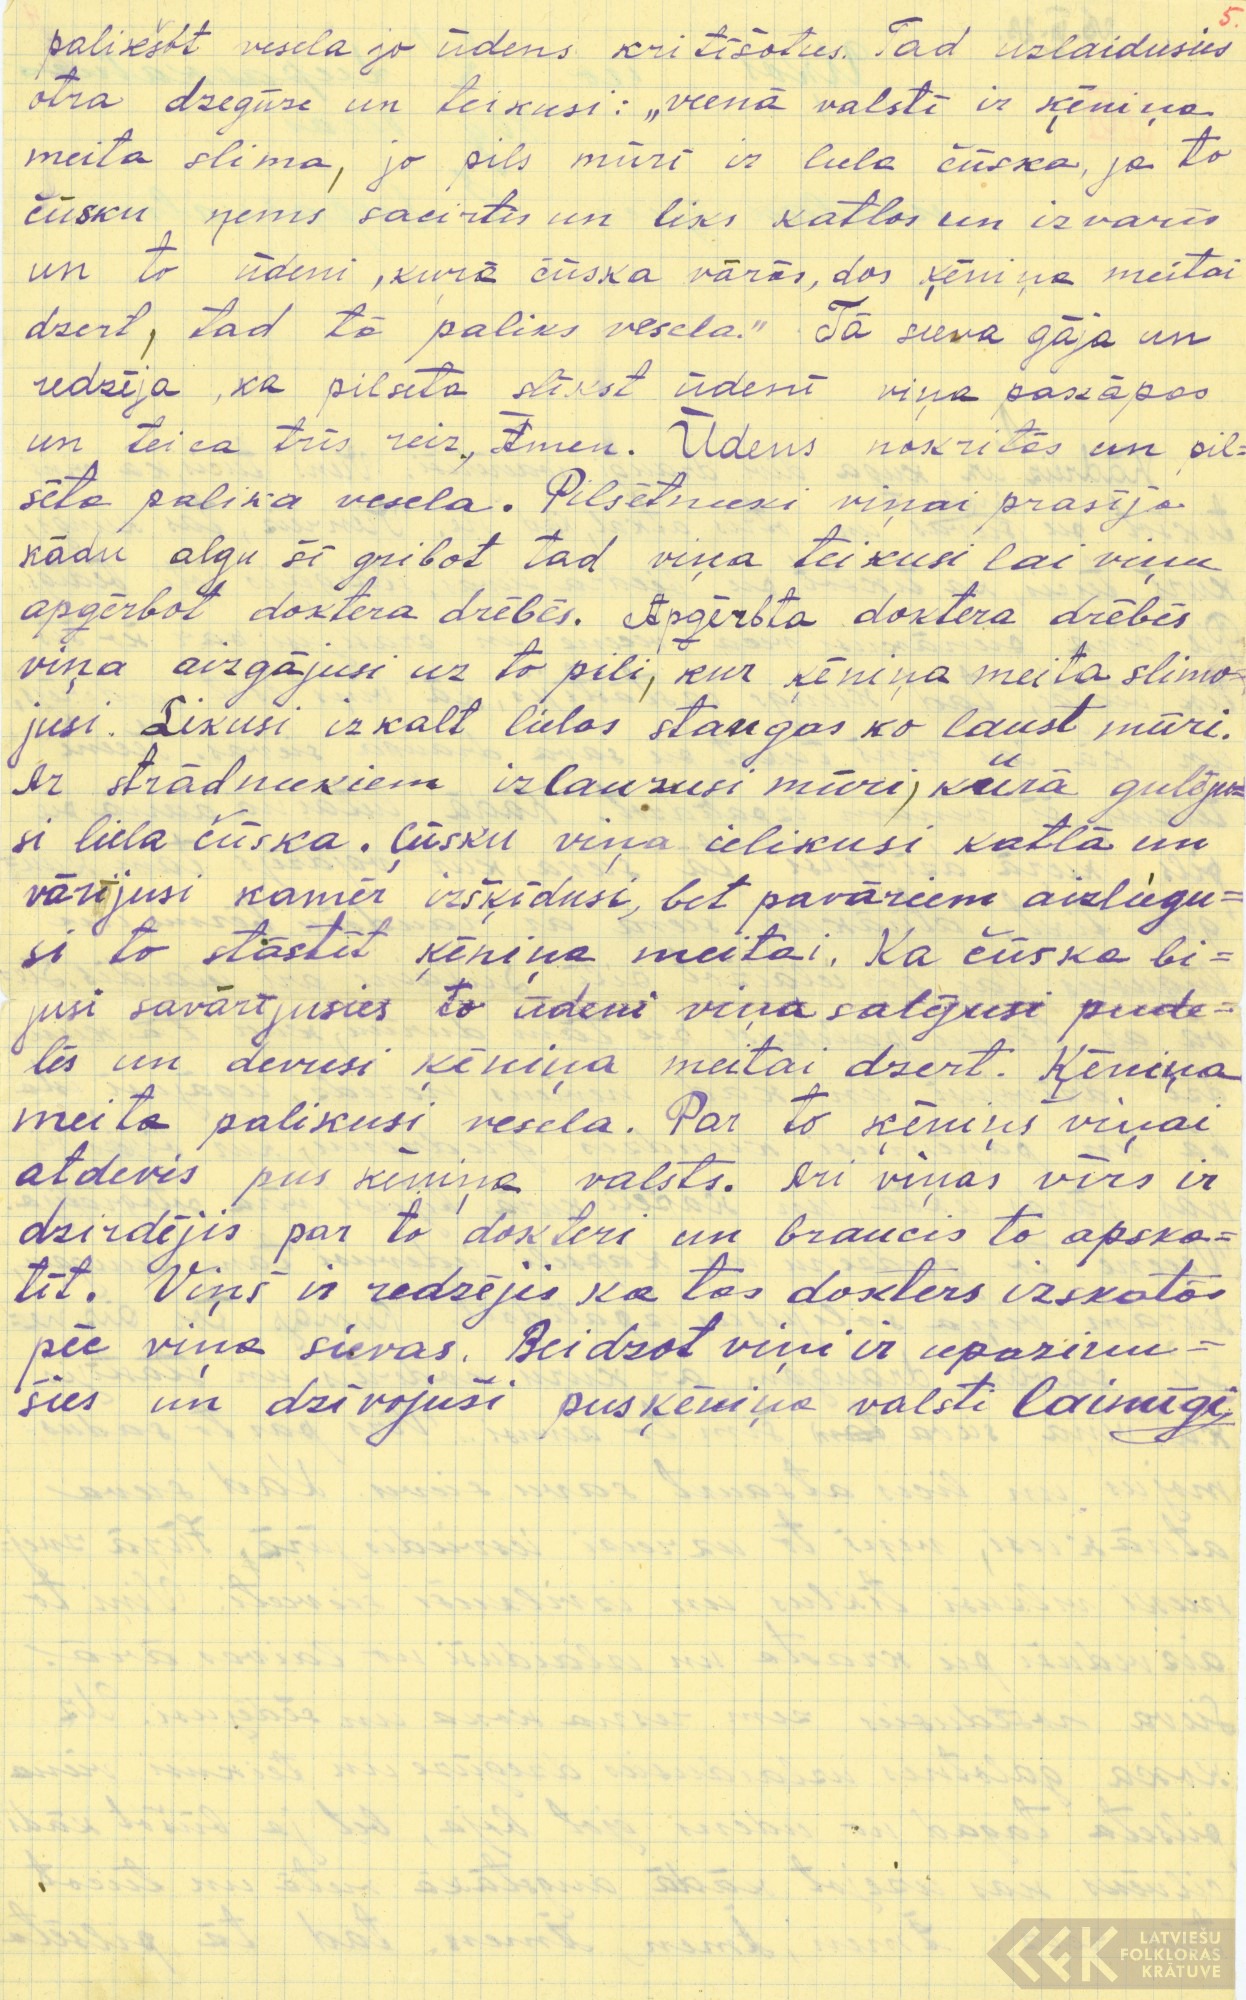 5.
palikšot vesela jo ūdens kritīšoties. Tad uzlaidusies
otra dzegūze un teikusi: „vienā valstī ir ķēniņa
meita slima, jo pils mūrī ir liela čūska, ja to
čūsku ņems sacirtīs un liks katlos un izvarīs
un to ūdeni, kurā čūska vārās, dos ķēniņa meitai
dzert, tad tā paliks vesela." Tā sieva gāja un
redzēja, ka pilsēta slīkst ūdenī viņa pakāpās
un teica trīs reiz, Āmen. Ūdens nokritās un pil=
sēta palika vesela. Pilsētnieki viņai prasīja
kādu algu šī gribot tad viņa teikusi lai viņu
apģērbot doktera drēbēs. Apģērbta doktera drēbēs
viņa aizgājusi uz to pili, kur ķēniņa meita slimo=
jusi. Likusi izkalt lielas stangas ko lauzt mūri.
Ar strādniekiem izlauzusi mūri, kurā gulēju=
si liela čūska. Čūsku viņa ielikusi katlā un
vārījusi kamēr izšķīdusi, bet pavāriem aizliegu=
si to stāstīt ķēniņa meitai. Ka čūska bi=
jusi savārījusies to ūdeni viņa salējusi pude=
lēs un devusi ķēniņa meitai dzert. Ķēniņa
meita palikusi vesela. Par to ķēniņš viņai
atdevis pus ķēniņa valsts. Arī viņas vīrs ir
dzirdējis par to dokteri un braucis to apska=
tīt. Viņš ir redzējis ka tas dokters izskatās
pēc viņa sievas. Beidzot viņi ir upazinu=
šies un dzīvojuši pusķēniņa valstī laimīgi
LATVIEŠU
FOLKLORAS
KRĀTUVE